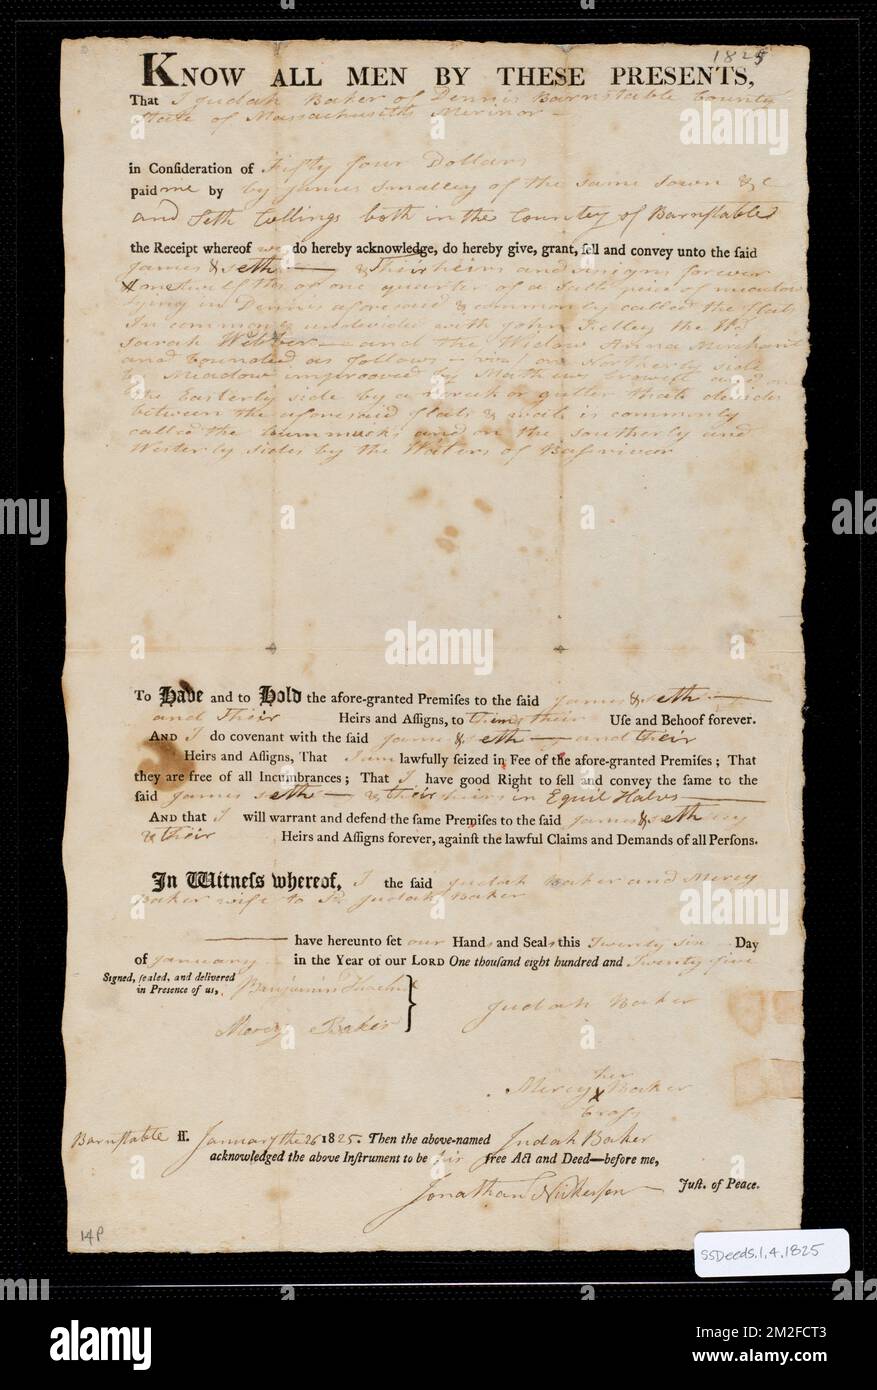 1825
KNOW ALL MEN BY THESE PRESENTS,
That I Judah Baker of Dennis Barnstable County
State of Massachusetts Merinor
in Conſideration of Fifty four Dollars
paid me by by James Smalley of the same Town & c
and Seth Collings both in the Country of Barnſtable
the Receipt whereof we do hereby acknowledge, do hereby give, grant, ſell and convey unto the ſaid
James & Seth & Their heirs and asigns forever
of one quarter of a Salt piece of meadow
lying in Dennis aforesaid & commonly called the flats
In common & undevided with John Kelley the Wd
Sarah Webber and the Widow Anna Merchant
and bounded as follows viz/ on Northerly side
by Meadow improoved by Mathew Crowell and on
the Easterly side by a or gutter that devides
between the aforesaid flats & wait is commonly
called the hummucks and on the Southerly and
Westerly sides by the Waters of Baſsrivear
To Have and to Hold the afore-granted Premiſes to the ſaid James & Seth
and Their Heirs and Aſſigns, to their Uſe and Behoof forever.
AND I do covenant with the ſaid James & Seth and their
Heirs and Aſſigns, That I am lawfully ſeized in Fee of the afore-granted Premiſes; That
they are free of all Incumbrances; That I have good Right to ſell and convey the ſame to the
ſaid James Seth & their heirs in Equil Halvs
AND that I will warrant and defend the ſame Premiſes to the ſaid James & Seth
& their Heirs and Aſſigns forever, againſt the lawful Claims and Demands of all Perſons.
In Witneſs whereof, I the ſaid Judah Baker and Mercy
Baker wife to Sd Judah Baker
have hereunto ſet our Hands and Seals this Twenty six Day
of January in the Year of our LORD One thouſand eight hundred and Twenty five
Signed, ſealed, and delivered
in Preſence of us,
Benjamin Thacher
Judah Baker
Mercy Baker
her
Mercy X Baker
Croſs
Barnſtable ſſ. January the 26 1825. Then the above-named Judah Baker
acknowledged the above Inſtrument to be his free Act and Deed—before me,
Jonathan Nickerson Juſt. of Peace.
14P
SSDeeds.1.4.1825
alamy
Image ID: 2M2FCT3
www.alamy.com